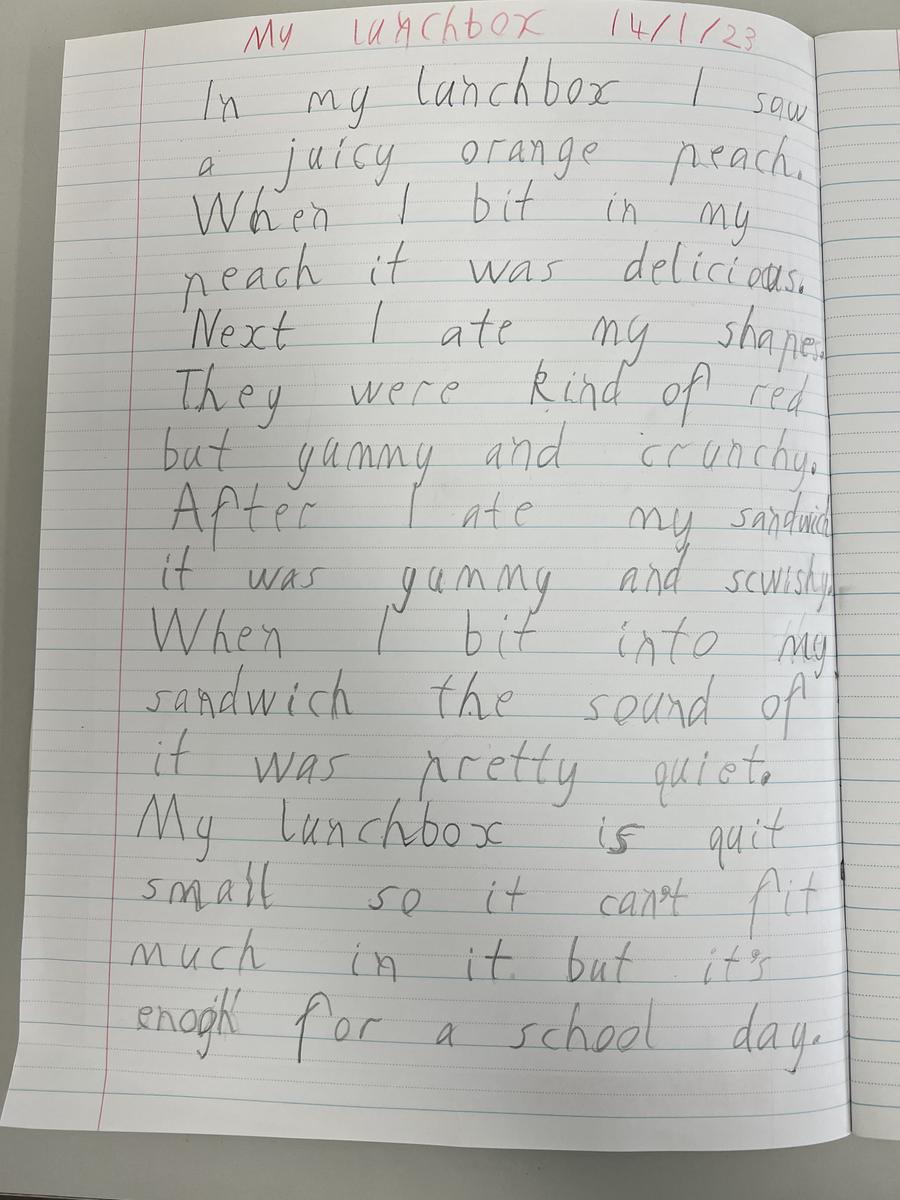 My lunchbox 14/1/23
In my lunchbox I saw
a juicy orange peach.
When I bit in my
peach it was delicious.
Next I ate my shapes.
They were kind of red
but yummy and crunchy.
After I ate my sandwich
it was yummy and scwishy.
When I bit into my
sandwich the sound of
it was pretty quiet.
My lunchbox is quit
small so it can't fit
much in it but it's
enogh for a school day.